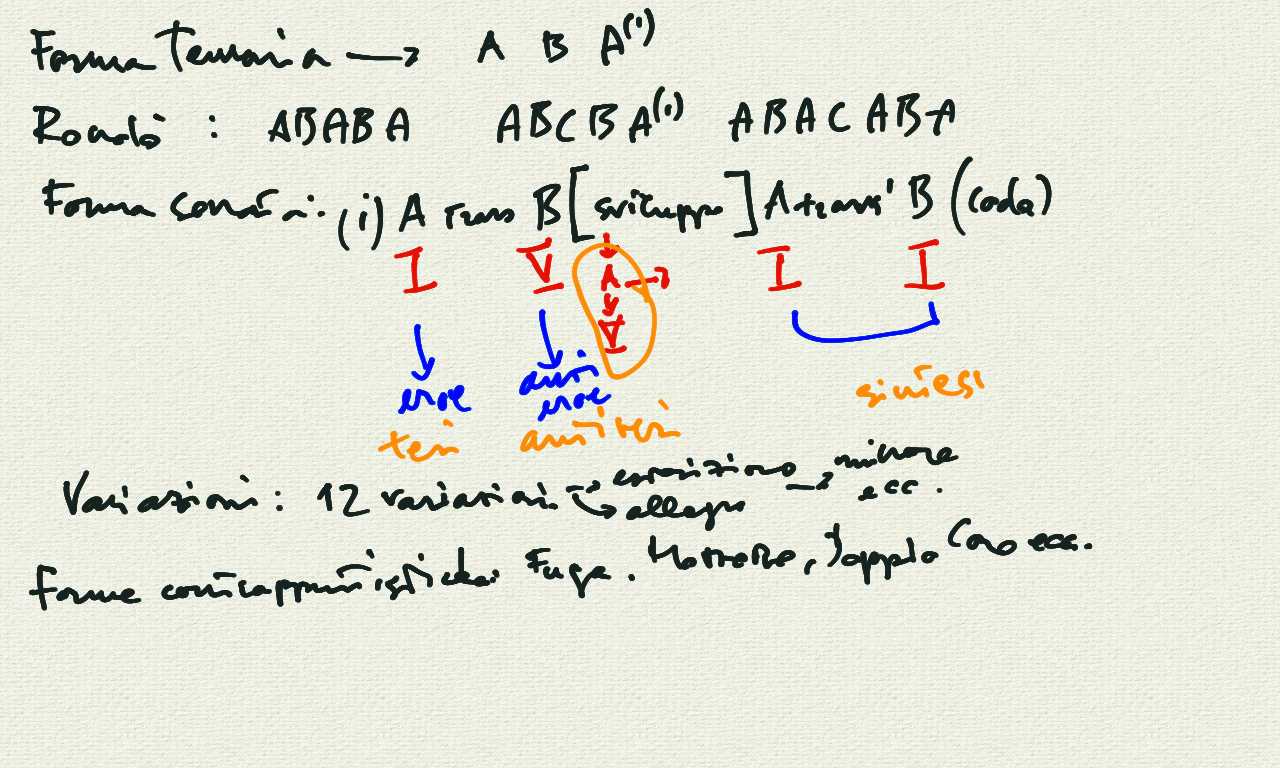 Forma Ternaria → A B A(')
Rondò : ABABA ABCBA(') ABACABA
Forma sonata: (i) A trans B [sviluppo] A trans' B (coda)
I V I I
A →
V
eroe anti eroe
tesi antitesi sintesi
Variazioni: 12 variazioni → espositivo → minore ecc.
→ allegro
Forme contrappuntistiche: Fuga. Mottetto, Doppio Coro ecc.